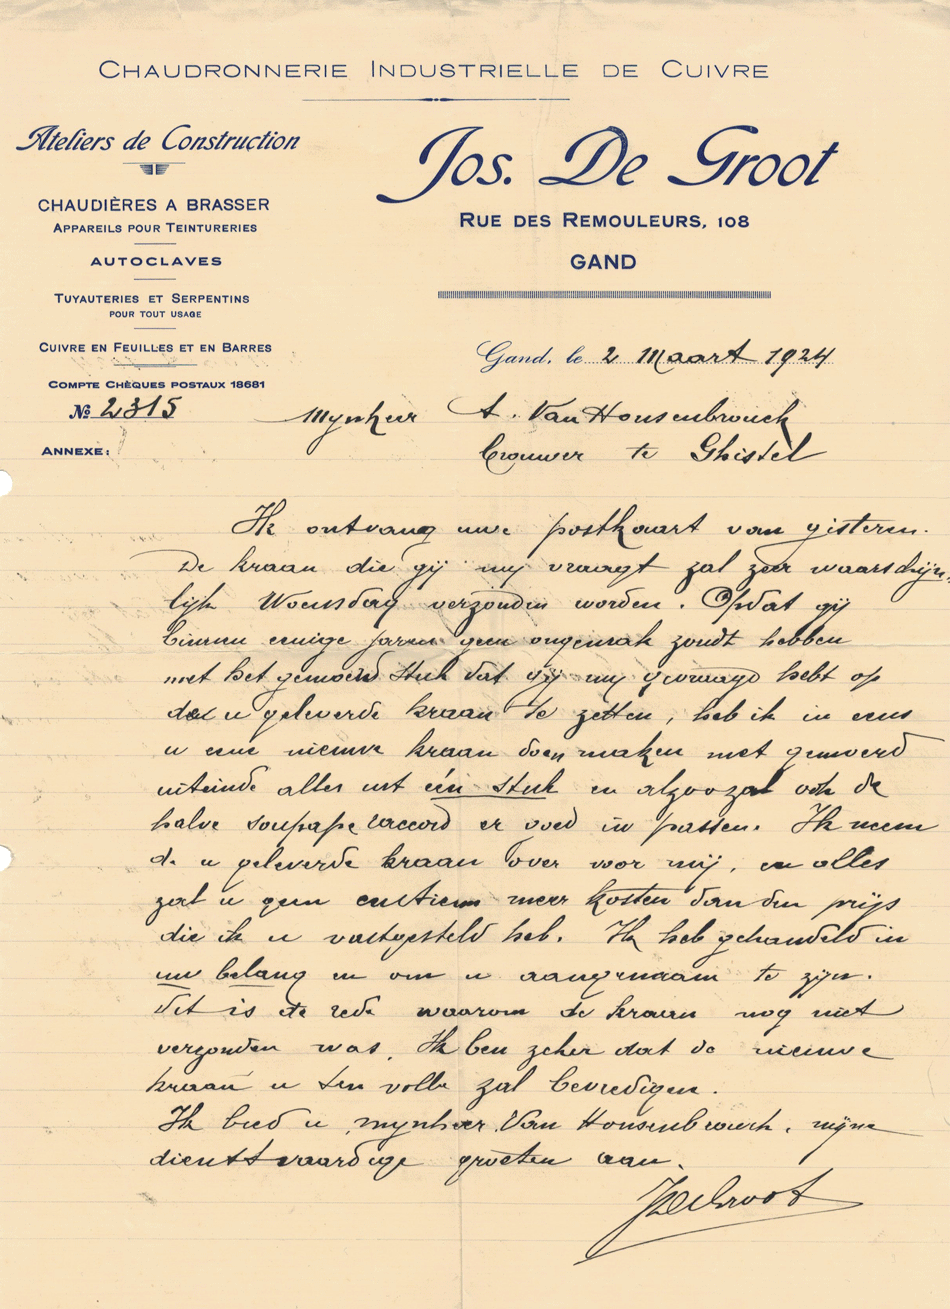 CHAUDRONNERIE INDUSTRIELLE DE CUIVRE
Ateliers de Construction
CHAUDIÈRES A BRASSER
APPAREILS POUR TEINTURERIES
AUTOCLAVES
TUYAUTERIES ET SERPENTINS
POUR TOUT USAGE
CUIVRE EN FEUILLES ET EN BARRES
COMPTE CHÈQUES POSTAUX 18681
№ 2315
ANNEXE:
Jos. De Groot
RUE DES REMOULEURS, 108
GAND
Gand, le 2 Maart 1924
Mynheer A. Van Housenbrouck
brouwer te Ghistel
Ik ontvang uwe postkaart van gisteren.
De kraan die gij mij vraagt zal zeer waarschijn-
lijk Woensdag verzonden worden. Opdat gij
binnen eenige jaren geen ongemak zoudt hebben
met het gemoerd stuk dat gij mij gevraagd hebt op
de u geleverde kraan te zetten, heb ik in eens
u eene nieuwe kraan doen maken met gemoerd
uiteinde alles uit één stuk en alzoo zal ook de
halve soupape raccord er goed in passen. Ik neem
de u geleverde kraan over voor mij, en alles
zal u geen centiem meer kosten dan den prijs
die ik u vastgesteld heb. Ik heb gehandeld in
uw belang en om u aangenaam te zijn.
Dit is de rede waarom de kraan nog niet
verzonden was. Ik ben zeker dat de nieuwe
kraan u ten volle zal bevredigen.
Ik bied u, mynheer Van Housenbrouck, mijne
dienstvaardige groeten aan.
J De Groot